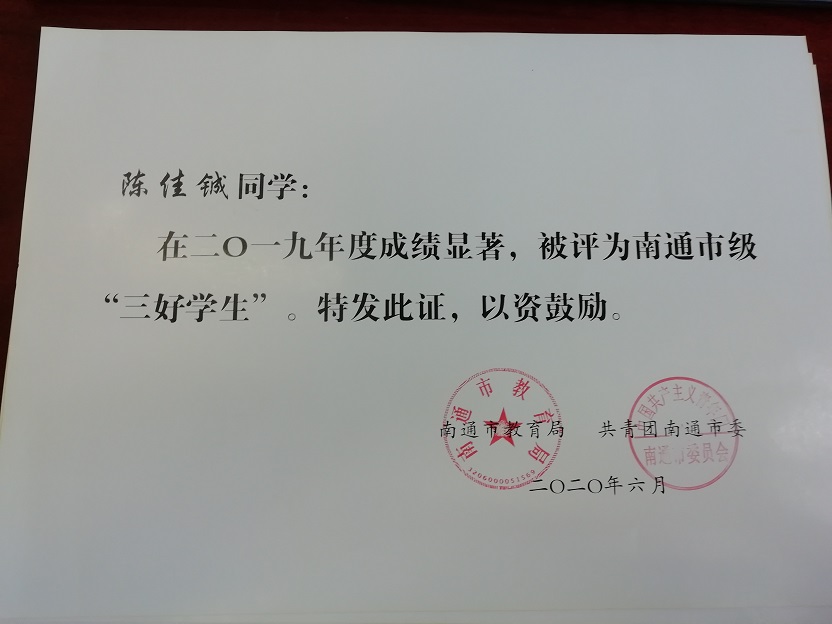 陈佳铖同学：
在二〇一九年度成绩显著，被评为南通市级
“三好学生”。特发此证，以资鼓励。
南通市教育局
南通市教育局 共青团南通市委
中国共产主义青年团
南通市委员会
二〇二〇年六月